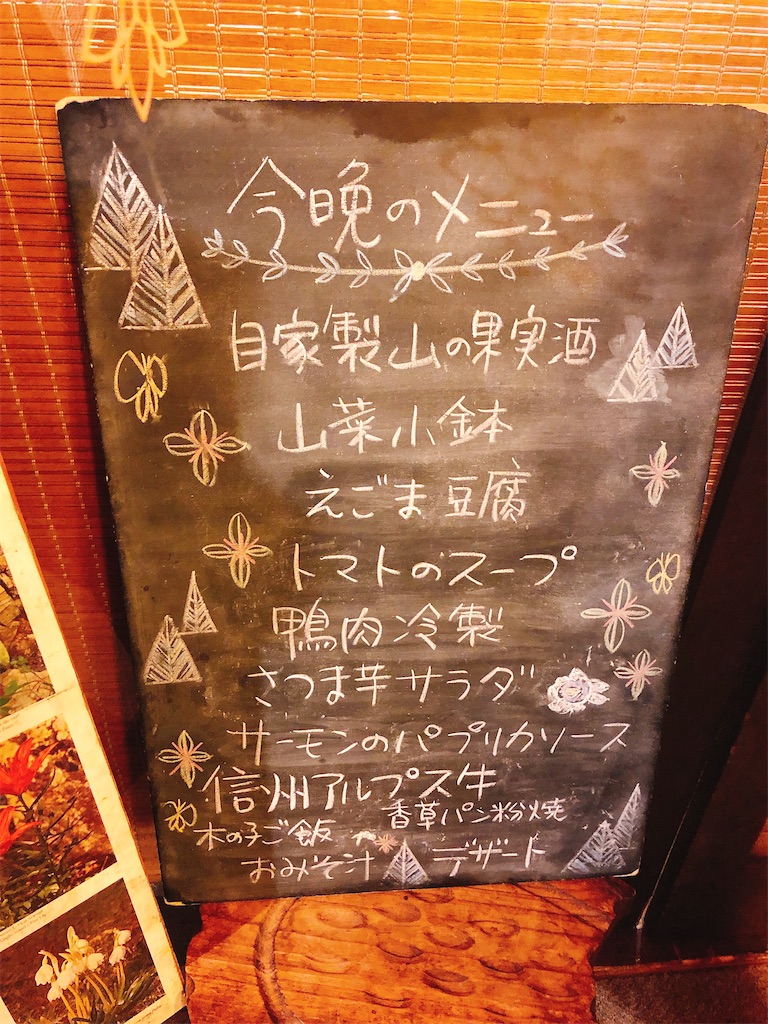 今晩のメニュー
自家製山の果実酒
山菜小鉢
えごま豆腐
トマトのスープ
鴨肉冷製
さつま芋サラダ
サーモンのパプリカソース
信州アルプス牛
香草パン粉焼
木の子ご飯
おみそ汁 デザート